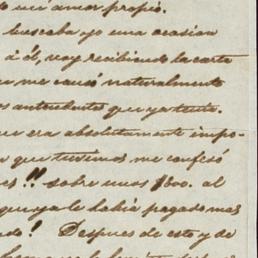 do mi amor propio.
buscaba yo una ocasion
á él, voy recibiendo la carta
me causó naturalmente
os antecedentes que ya tente.
que era absolutamente impo-
n que tuvimos me confesó
es!! sobre unos 1800. al
que ya le habia pagado mas
do! Despues de esto y de